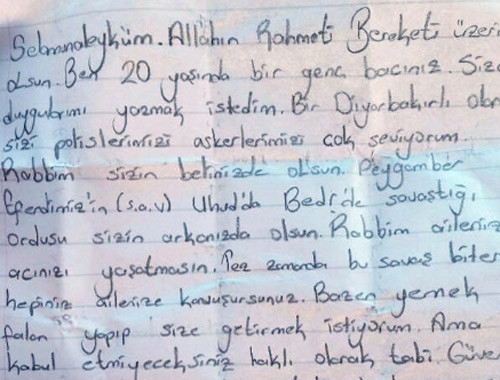 Selamnaleyküm. Allahın Rahmeti Bereketi üzeri
olsun. Ben 20 yaşında bir genç bacınız. Size
duygularımı yazmak istedim. Bir Diyarbakırlı olar
sizi polislerimizi askerlerimizi çok seviyorum.
Rabbim sizin belinizde olsun. Peygamber
Efendimiz'in (s.a.v) Uhud'da Bedir'de savaştığı
ordusu sizin arkanızda olsun. Rabbim ailenize
acınızı yaşatmasın. Tez zamanda bu savaş biter
hepiniz ailenize kavuşursunuz. Bazen yemek
falan yapıp size getirmek istiyorum. Ama
kabul etmiyeceksiniz haklı olarak tabi. Güve